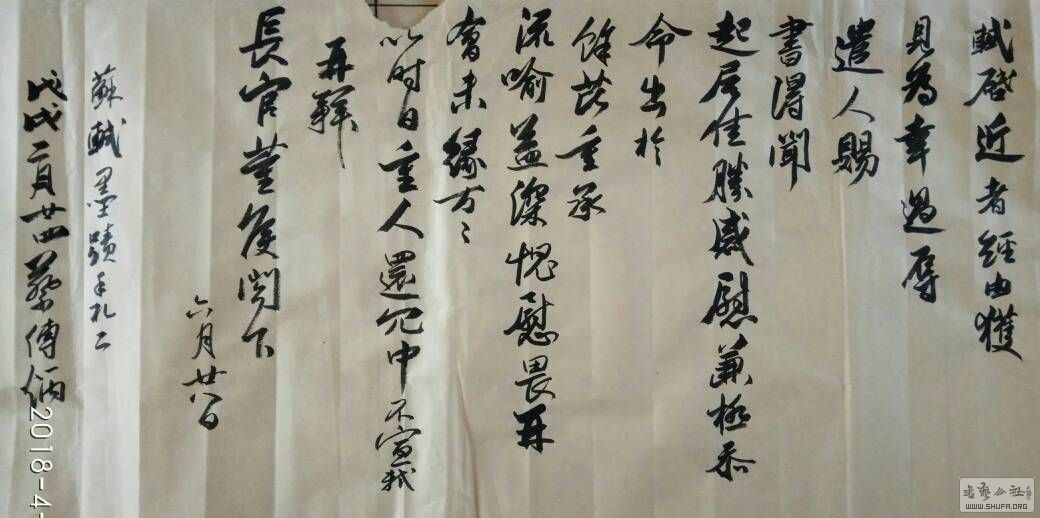 軾啟近者經由獲
見為幸過辱
遣人賜
書得聞
起居佳勝感慰兼極忝
命出於
餘芘重承
流喻益深愧慰畏再
會未緣万々
以時自重人還冗中不宣軾
再拜
長官董侯閣下
六月廿八日
蘇軾墨蹟手札二
戊戌二月廿四蔡傳炳
2018-4-
書藝公社
WWW.SHUFA.ORG